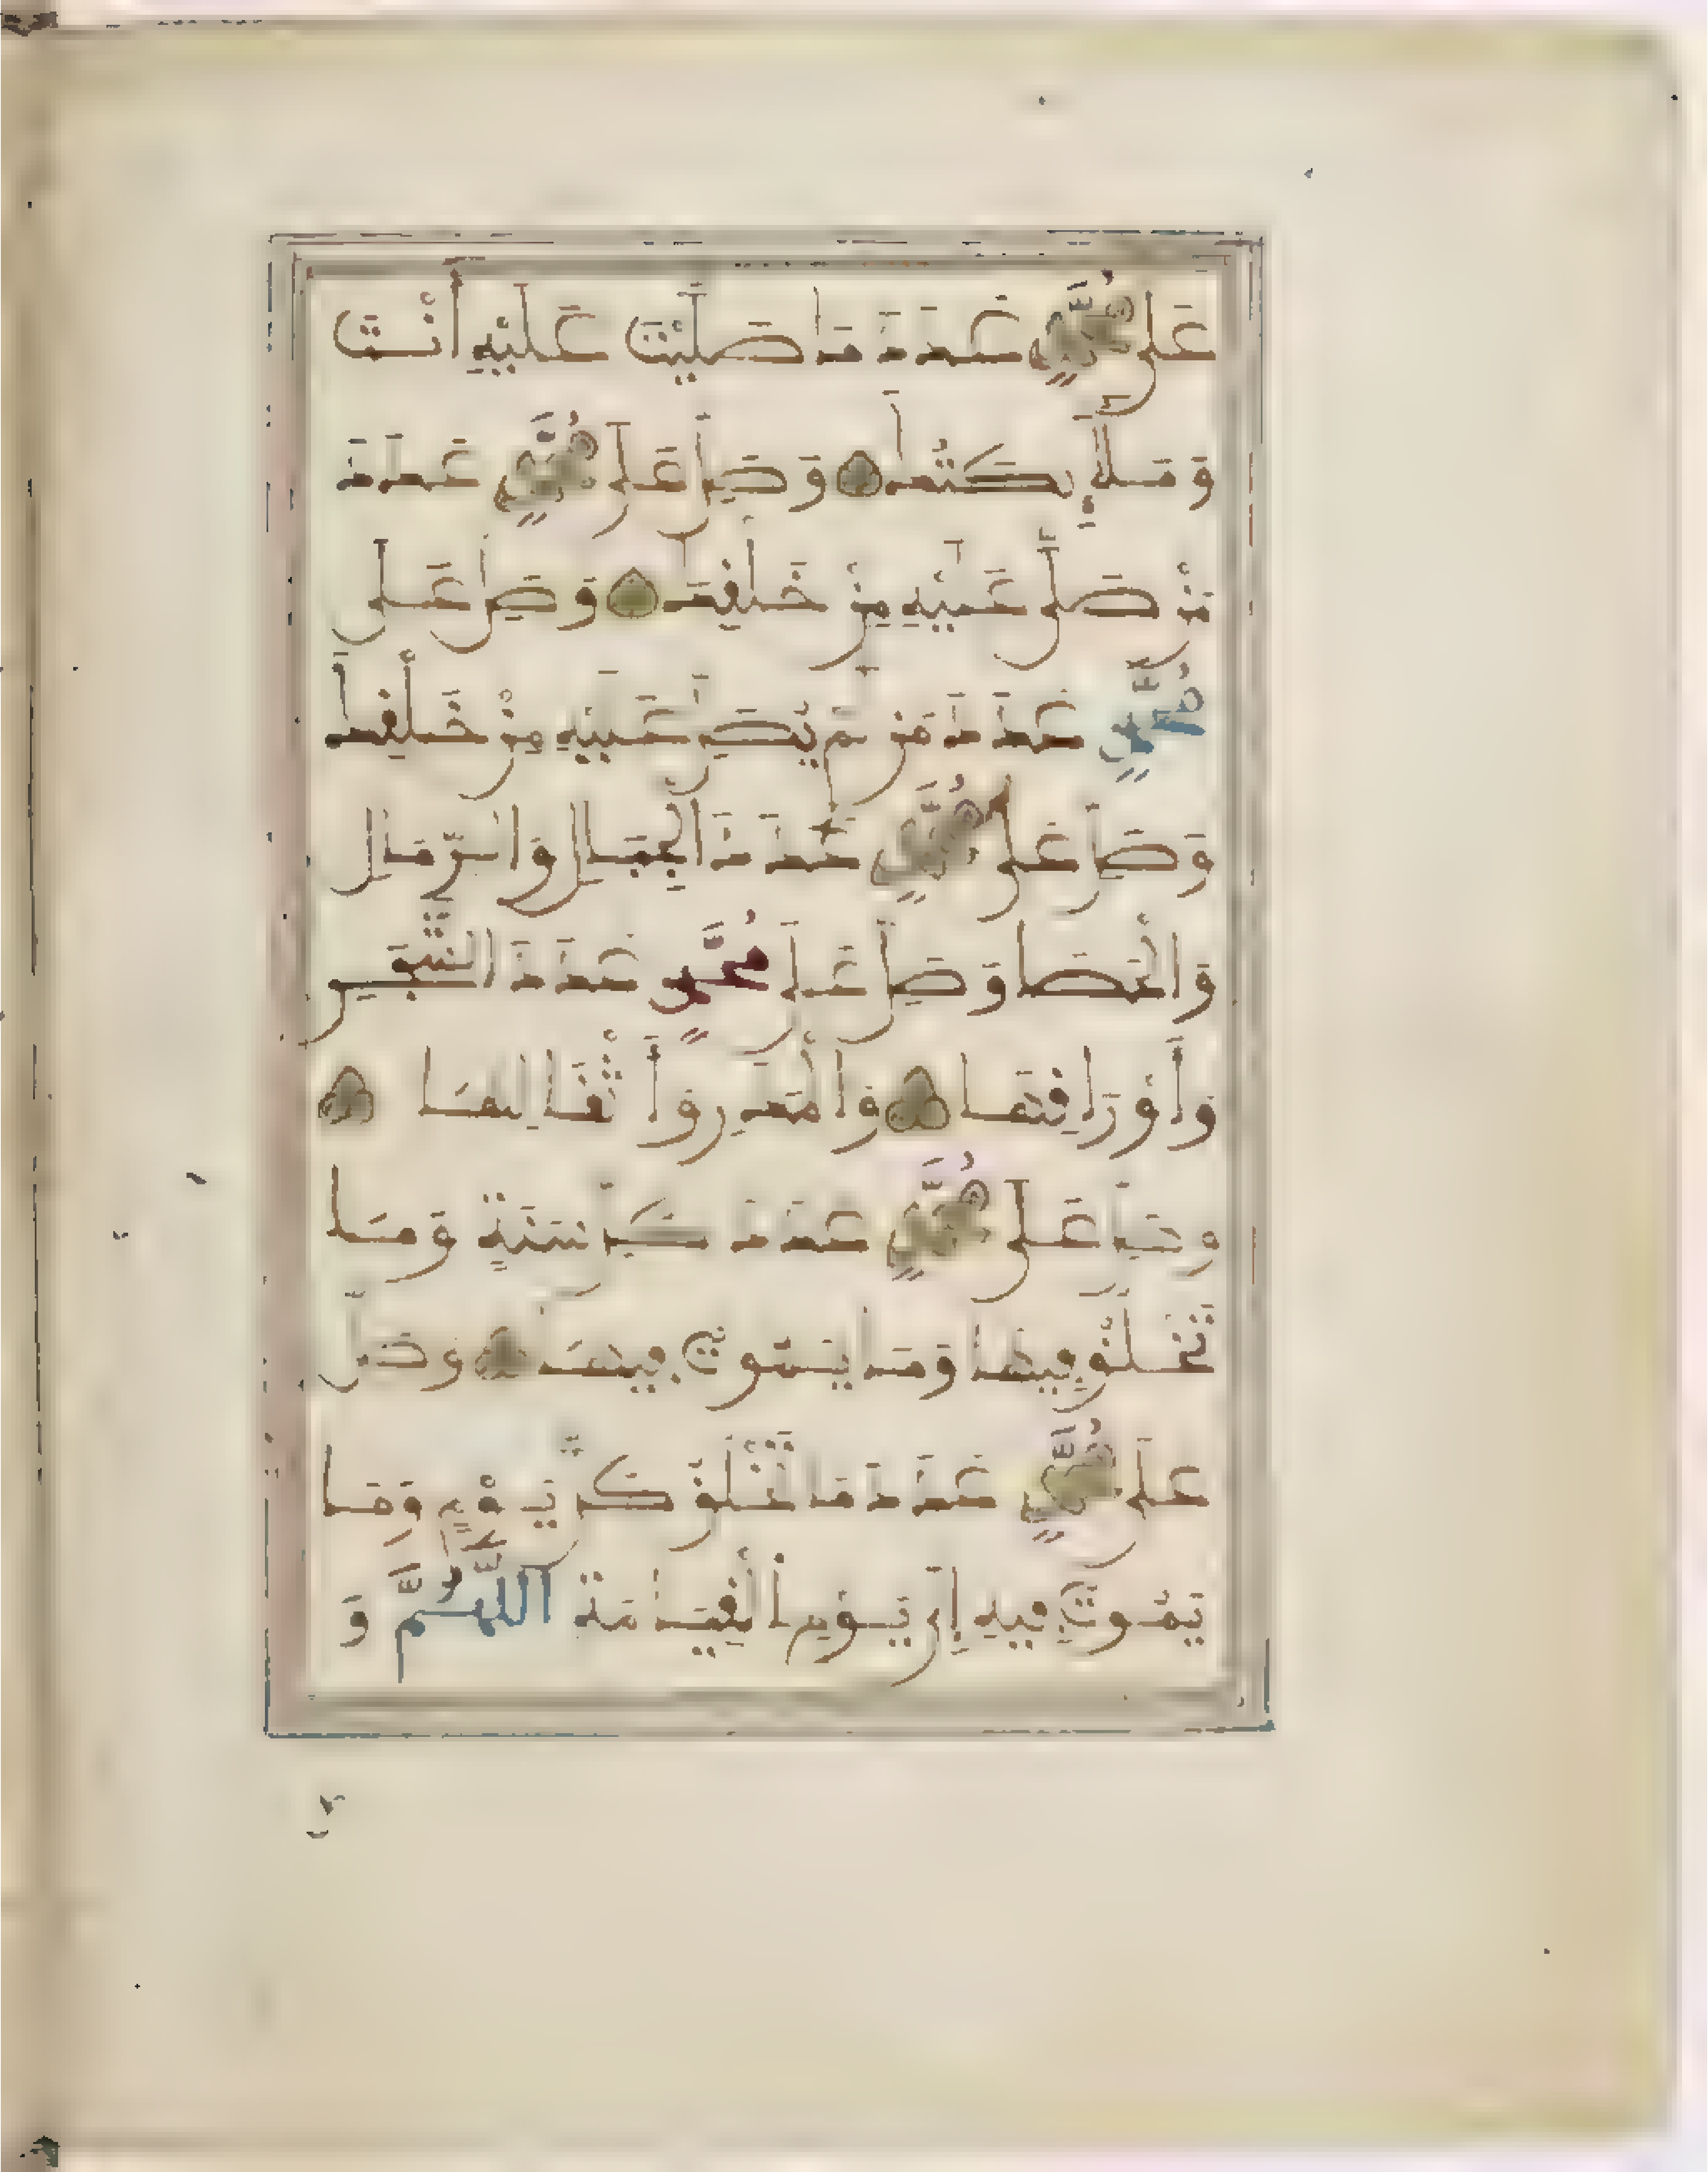 عَلَى مُحَمَّدٍ عَدَدَ مَا صَلَّيْتَ عَلَيْهِ أَنْتَ
وَمَلَائِكَتُهَا وَصَلِّ عَلَى مُحَمَّدٍ عَدَدَ
مَنْ صَلَّى عَلَيْهِ مِنْ خَلْقِهَا وَصَلِّ عَلَى
مُحَمَّدٍ عَدَدَ مَنْ لَمْ يُصَلِّ عَلَيْهِ مِنْ خَلْقِهَا
وَصَلِّ عَلَى مُحَمَّدٍ عَدَدَ الْجِبَالِ وَالرِّمَالِ
وَالْحَصَا وَصَلِّ عَلَى مُحَمَّدٍ عَدَدَ الشَّجَرِ
وَأَوْرَاقِهَا وَالْمَدَرِ وَأَثْقَالِهَا
وَصَلِّ عَلَى مُحَمَّدٍ عَدَدَ كُلِّ سَنَةٍ وَمَا
تَخْلُقُ فِيهَا وَمَا يَمُوتُ فِيهَا وَصَلِّ
عَلَى مُحَمَّدٍ عَدَدَ مَا تَخْلُقُ كُلَّ يَوْمٍ وَمَا
يَمُوتُ فِيهِ إِلَى يَوْمِ الْقِيَامَةِ اللَّهُمَّ وَ